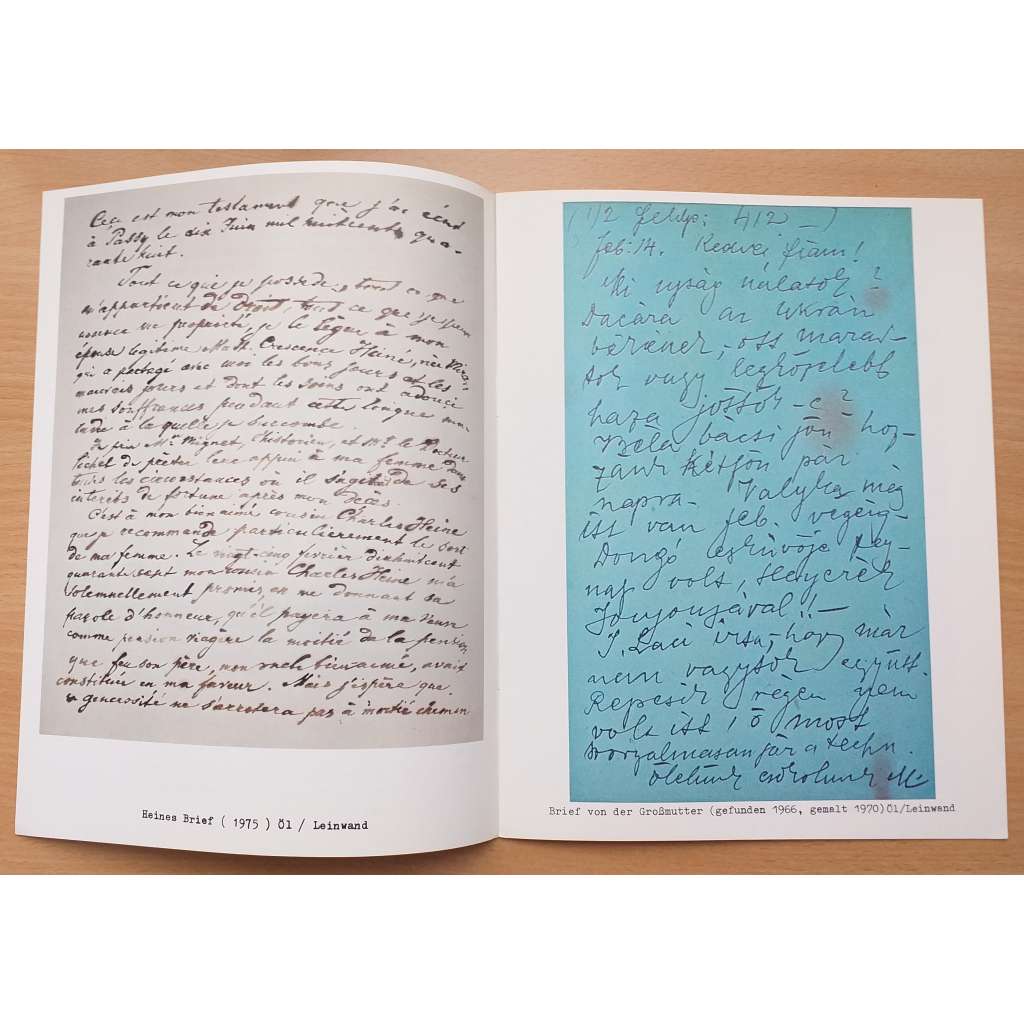 Ceci est mon testament que j'ai écrit
à Passy le dix Juin mil huitcents qua-
rante huit.
Tout ce que je possede, tout ce que
m'appartient de droit, tout ce que je peux
ma propriété, je le lègue à mon
épouse legitime Math. Crescence Heiné, née Mira,
qui a partagé avec moi les bons jours et les
mauvais jours et dont les soins ont adouci
mes souffrances pendant cette longue ma-
ladie à la quelle je succombe.
Mr Mignet, l'historien, et Mr le Docteur
de prêter leur appui à ma femme dans
toutes les circonstances où il s'agira de ses
intérêts de fortune après mon décès.
C'est à mon bienaimé cousin Charles Heine
que je recommande particulierement le sort
de ma femme. Le vingt-cinq février dixhuitcent
quarante sept mon cousin Charles Heine m'a
solemnellement promis, en me donnant sa
parole d'honneur, qu'il payera à ma veuve
comme pension viagère la moitié de la pension,
que feu son père, mon oncle bienaimé, avait
constituée en ma faveur. Mais j'espère que
generosité ne s'arretera pas à moitié chemin
Heines Brief ( 1975 ) Öl / Leinwand
(1/2 412 - )
Feb: 14. Kedves fiam!
Mi ujság nálatok?
az ukrán
ott marad-
tok vagy legközelebb
haza jöttök - e?
Béla bácsi jön hoz-
zánk Kétfőn pár
napra - Valyka még
itt van feb. végéig
Dongó esküvője teg-
nap volt,
!! -
J. Laci írta, hogy már
nem vagytok együtt.
régen nem
volt itt, ő most
borzalmasan jár a techn.
Ölelünk csókolunk M
Brief von der Großmutter (gefunden 1966, gemalt 1970)Öl/Leinwand